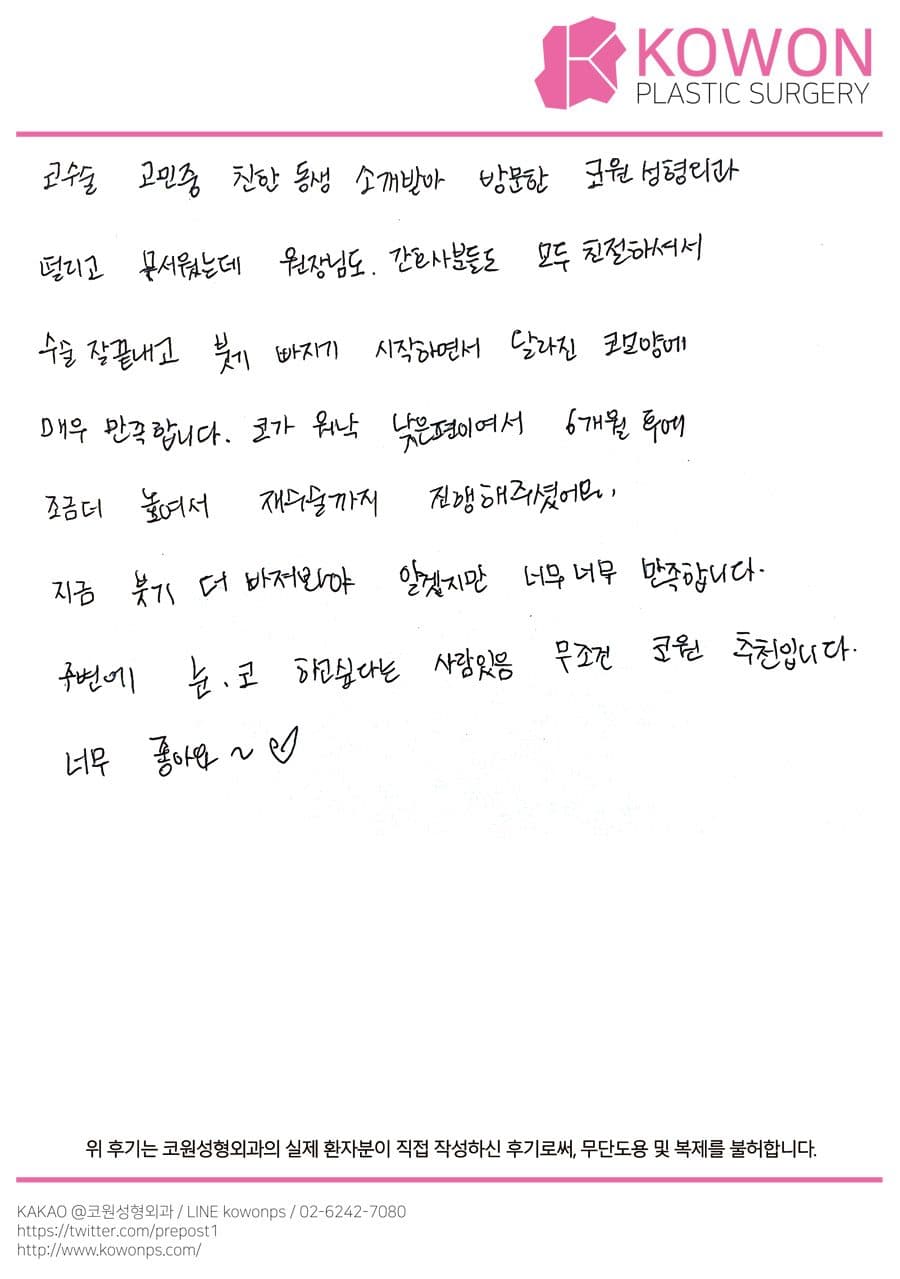 KOWON
PLASTIC SURGERY
코수술 고민중 친한 동생 소개받아 방문한 코원 성형외과
떨리고 무서웠는데 원장님도. 간호사분들도 모두 친절하셔서
수술 잘끝내고 붓기 빠지기 시작하면서 달라진 코모양에
매우 만족합니다. 코가 워낙 낮은편이여서 6개월 후에
조금더 높여서 재수술까지 진행해주셨어요,
지금 붓기 더 빠져봐야 알겠지만 너무 너무 만족합니다.
주변에 눈.코 하고싶다는 사람있음 무조건 코원 추천입니다.
너무 좋아요~♡
위 후기는 코원성형외과의 실제 환자분이 직접 작성하신 후기로써, 무단도용 및 복제를 불허합니다.
KAKAO @코원성형외과 / LINE kowonps / 02-6242-7080
https://twitter.com/prepost1
http://www.kowonps.com/